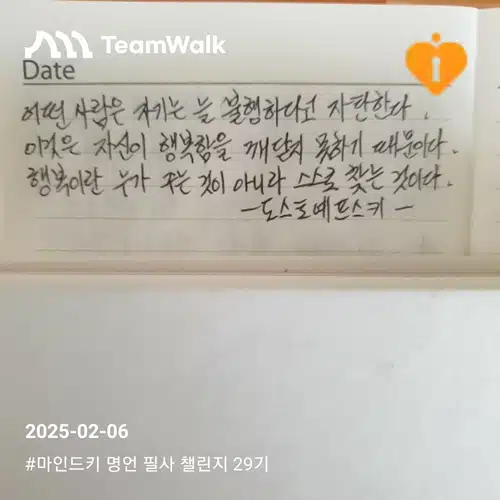 TeamWalk
Date
어떤 사람은 자기는 늘 불행하다고 자탄한다.
이것은 자신이 행복함을 깨닫지 못하기 때문이다.
행복이란 누가 주는 것이 아니라 스스로 찾는 것이다.
-도스토예프스키-
2025-02-06
#마인드키 명언 필사 챌린지 29기